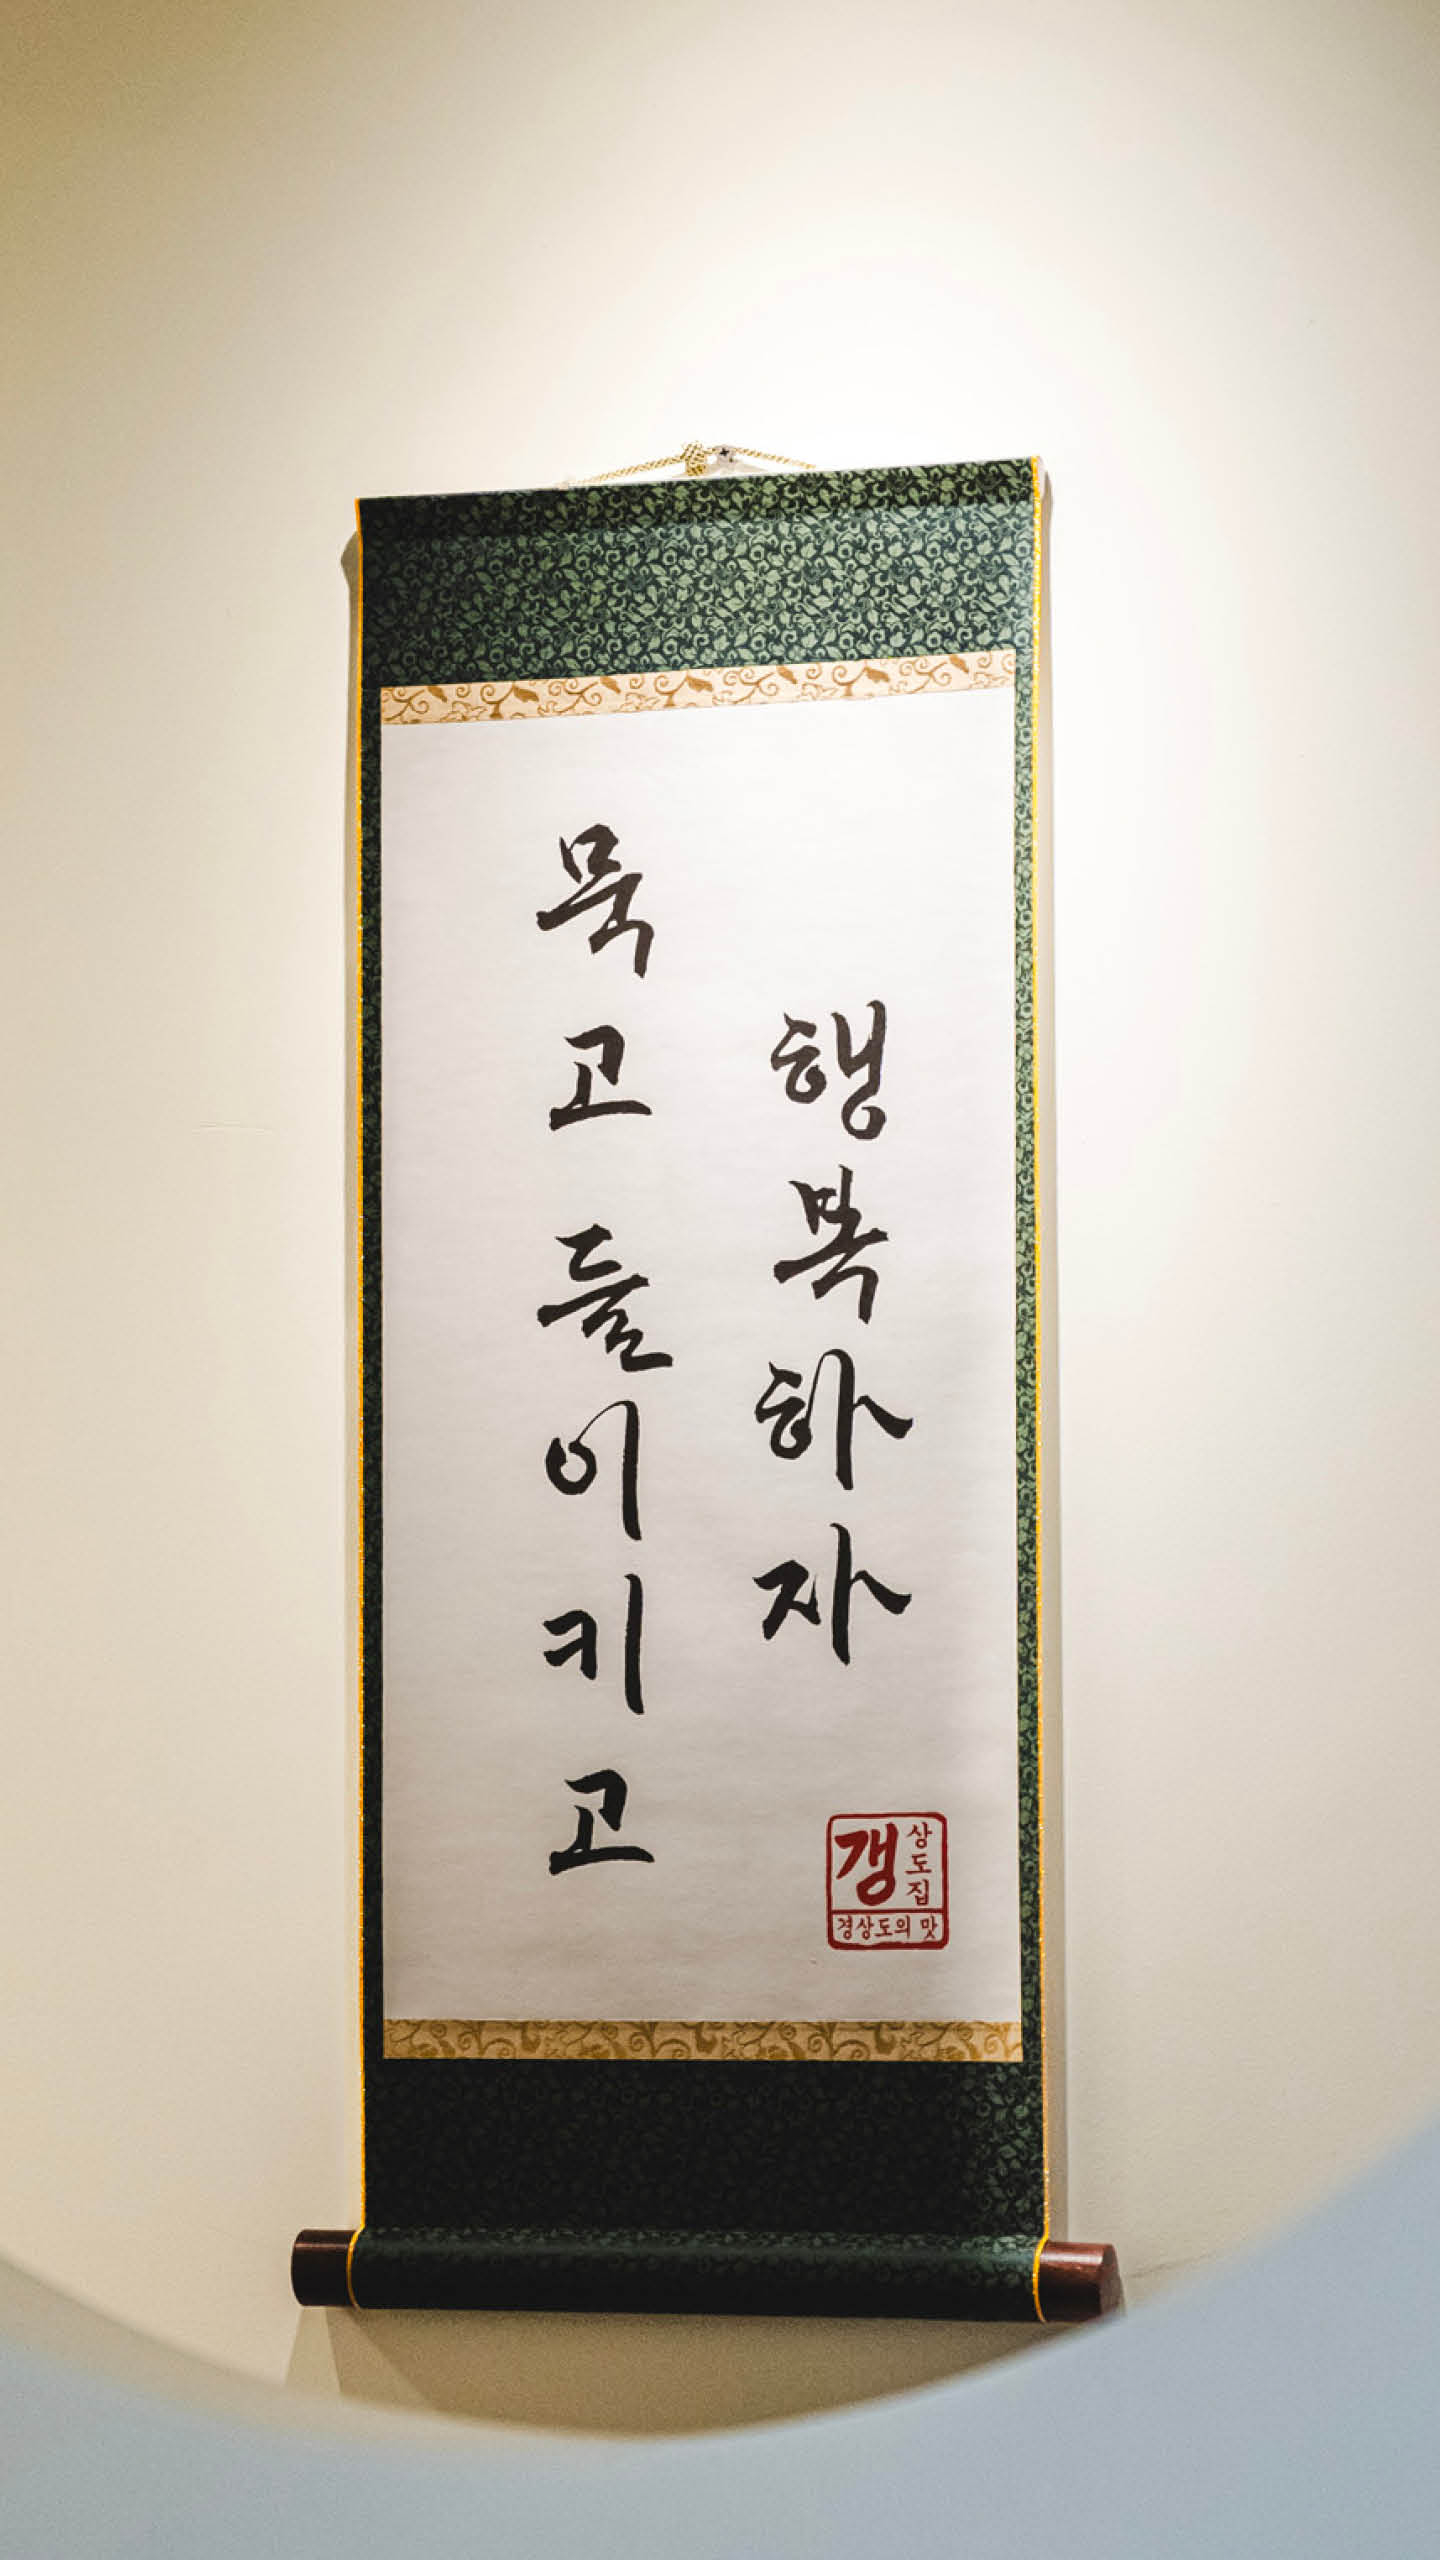 묵고들이키고
행복하자
갱상도집
경상도의 맛